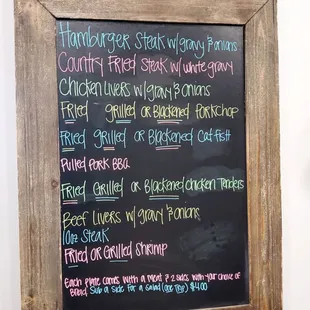 Hamburger Steak w/gravy & onions
Country Fried Steak w/ white gravy
Chicken Livers w/gravy & onions
Fried grilled or Blackened Porkchop
Fried Grilled or Blackened Catfish
Pulled Pork BBQ
Fried Grilled or Blackened Chicken Tenders
Beef Livers w/gravy & onions
10oz Steak
Fried or Grilled Shrimp
Each plate comes with a meat & 2 sides with your choice of
Bread Sub a side for a Salad $4.00